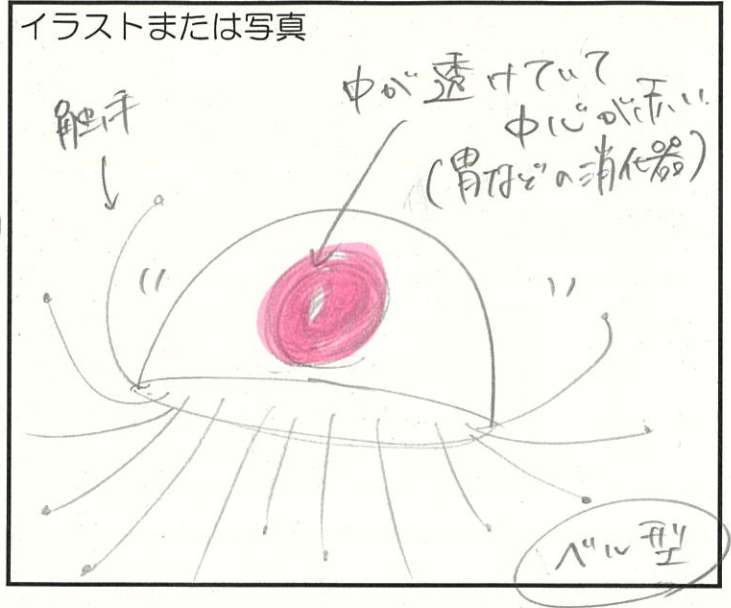 イラストまたは写真
触手
中が透けていて
中心が赤い
(胃などの消化器)
ベル型